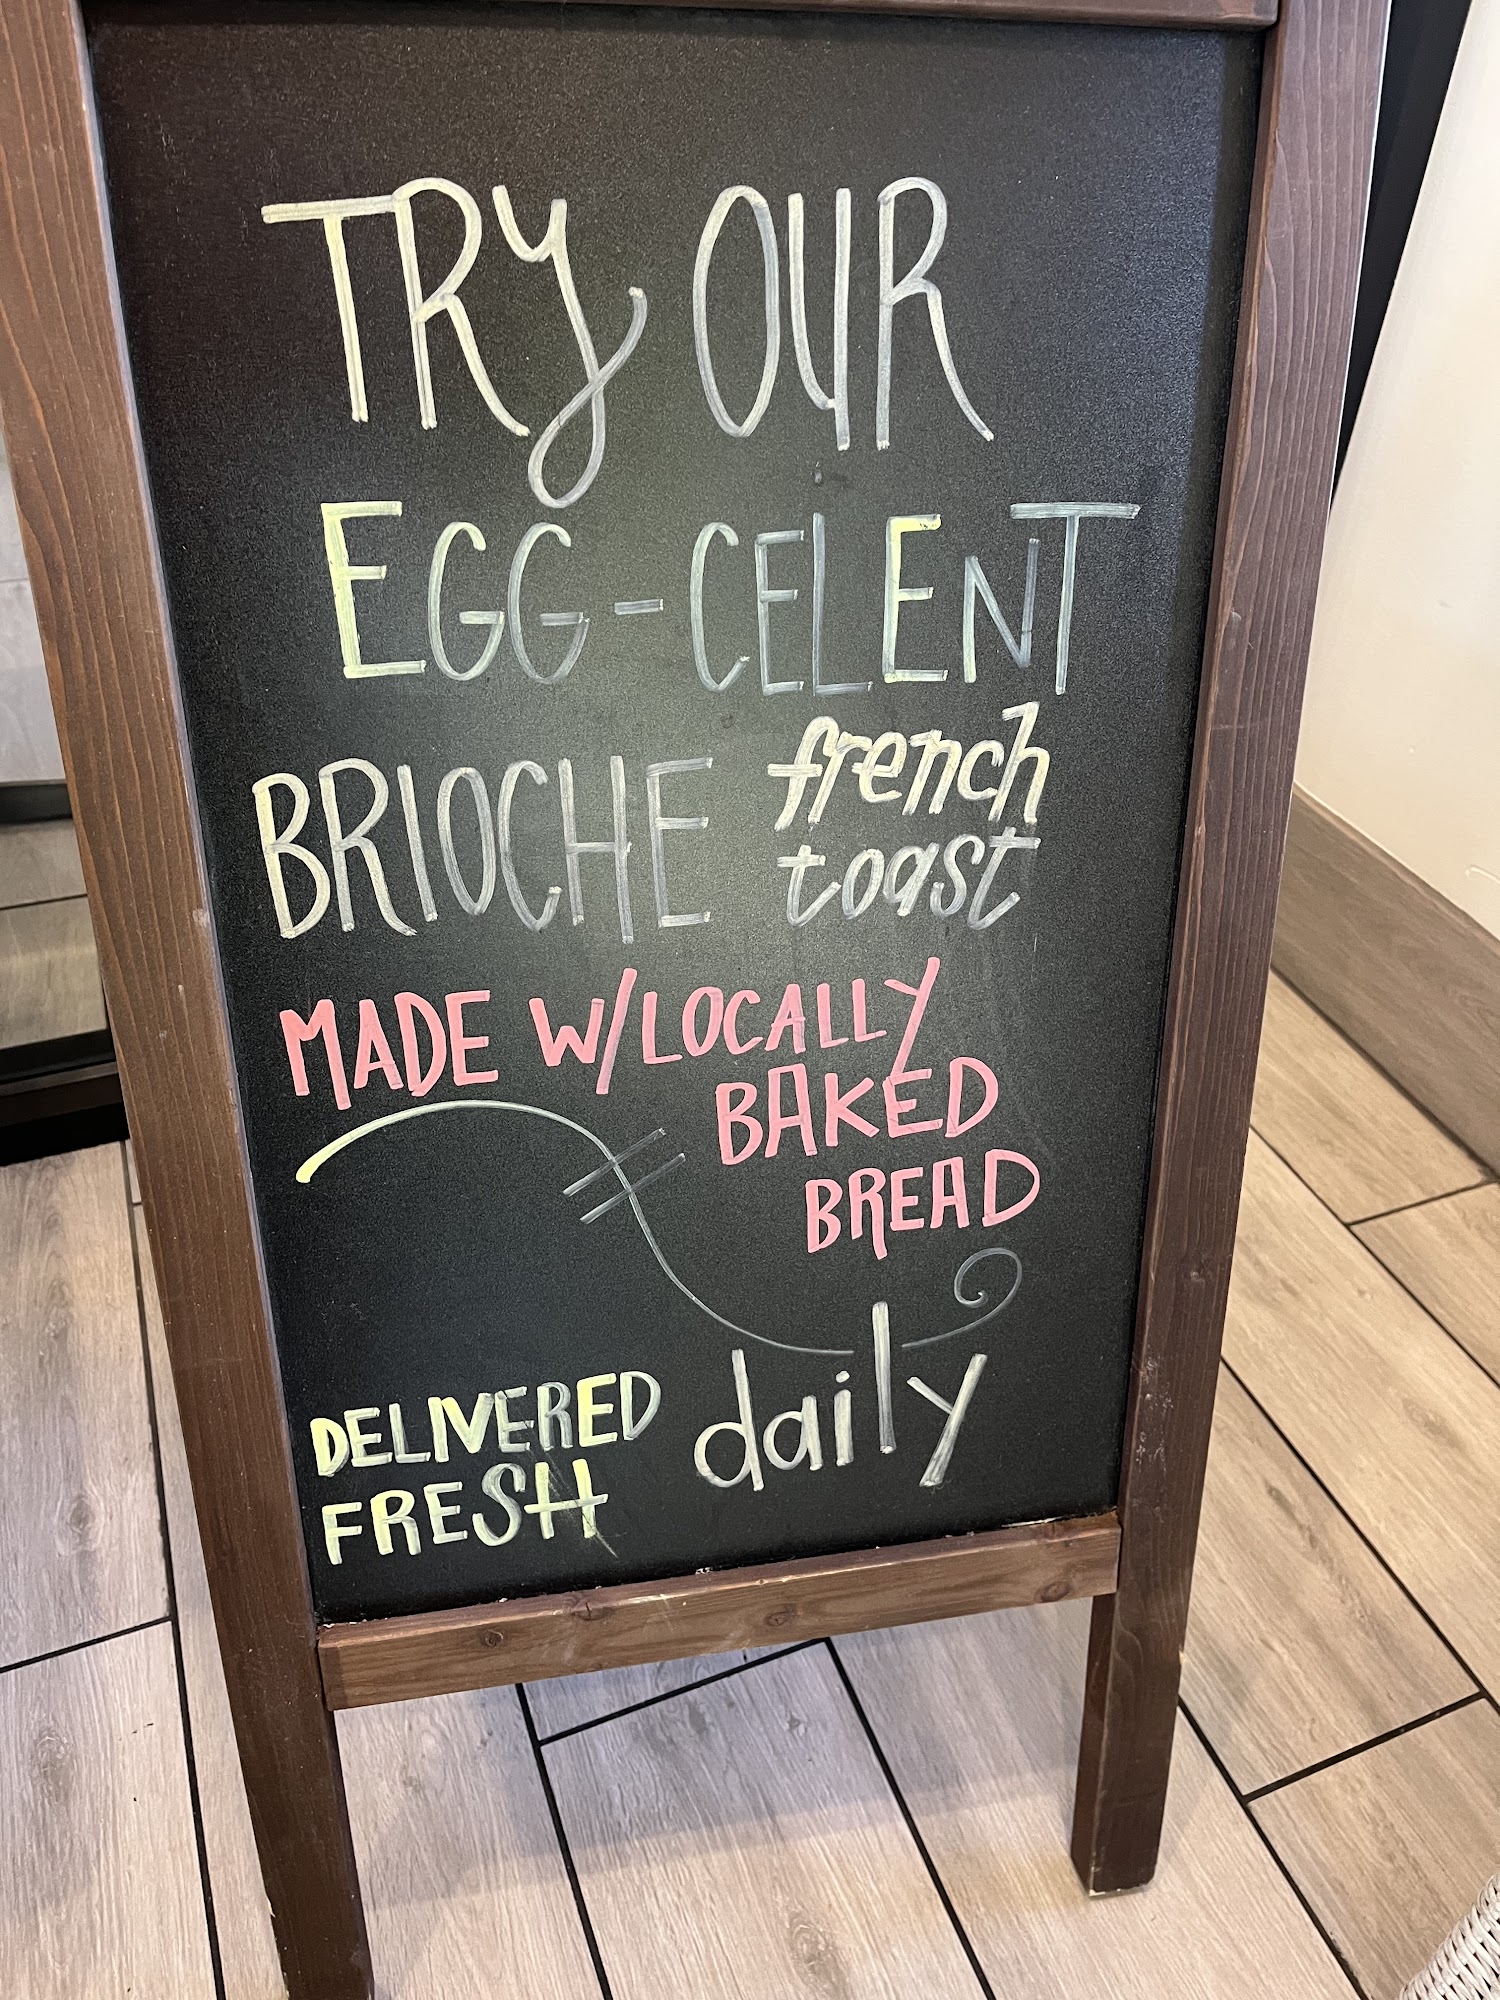 TRY OUR
EGG-CELENT
BRIOCHE french
toast
MADE W/LOCALLY
BAKED
BREAD
DELIVERED daily
FRESH